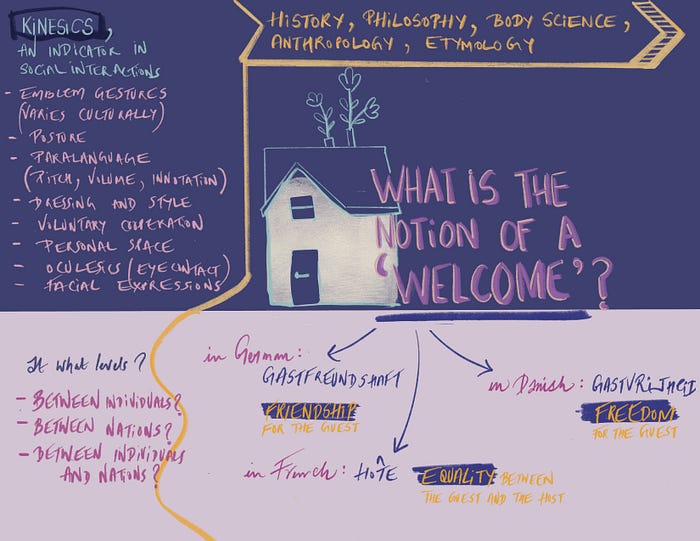 KINESICS,
AN INDICATOR IN
SOCIAL INTERACTIONS
- EMBLEM GESTURES
(VARIES CULTURALLY)
- POSTURE
- PARALANGUAGE
(PITCH, VOLUME, INNOTATION)
- DRESSING AND STYLE
- VOLUNTARY COOPERATION
- PERSONAL SPACE
- OCULESICS (EYE CONTACT)
- FACIAL EXPRESSIONS
HISTORY, PHILOSOPHY, BODY SCIENCE,
ANTHROPOLOGY, ETYMOLOGY
WHAT IS THE
NOTION OF A
'WELCOME'?
At what levels?
- BETWEEN INDIVIDUALS?
- BETWEEN NATIONS?
- BETWEEN INDIVIDUALS
AND NATIONS?
in German:
GASTFREUNDSHAFT
FRIENDSHIP
FOR THE GUEST
in Danish:
FREEDOM
FOR THE GUEST
in French: HOTE
EQUALITY BETWEEN
THE GUEST AND THE HOST